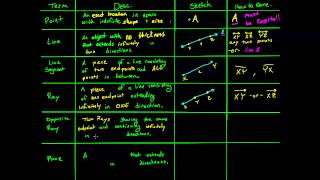 Term Desc. Sketch How to Name
Point An exact location in space
with infinite shape + size.
A
A
must
be
Capital!
Line An object with NO thickness
that extends infinitely
in two
directions.
X Y Z
XY YZ XZ
any two points
-or-
Line
Segment A piece of a line consisting
of two endpoints and ALL
points in between.
X Y
XY, YX
Ray A piece of a line consisting
of one endpoint extending
infinitely in ONE direction.
X Y Z
XY -or- XZ
Opposite
Ray Two Rays sharing the same
endpoint and continuing infinitely
in directions.
Plane A that extends
in directions.